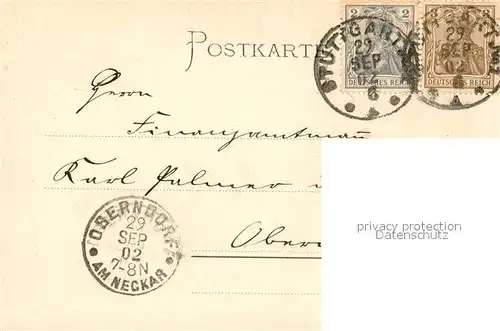 POSTKARTE
STUTTGART
29
SEP
02
6
2
DEUTSCHES REICH
3
29
SEP
02
DEUTSCHES REICH
Herrn
Finanzamtmann
Karl Palmer
OBERNDORF
29
SEP
02
7-8N
AM NECKAR
privacy protection
Datenschutz
www.oldthing.de